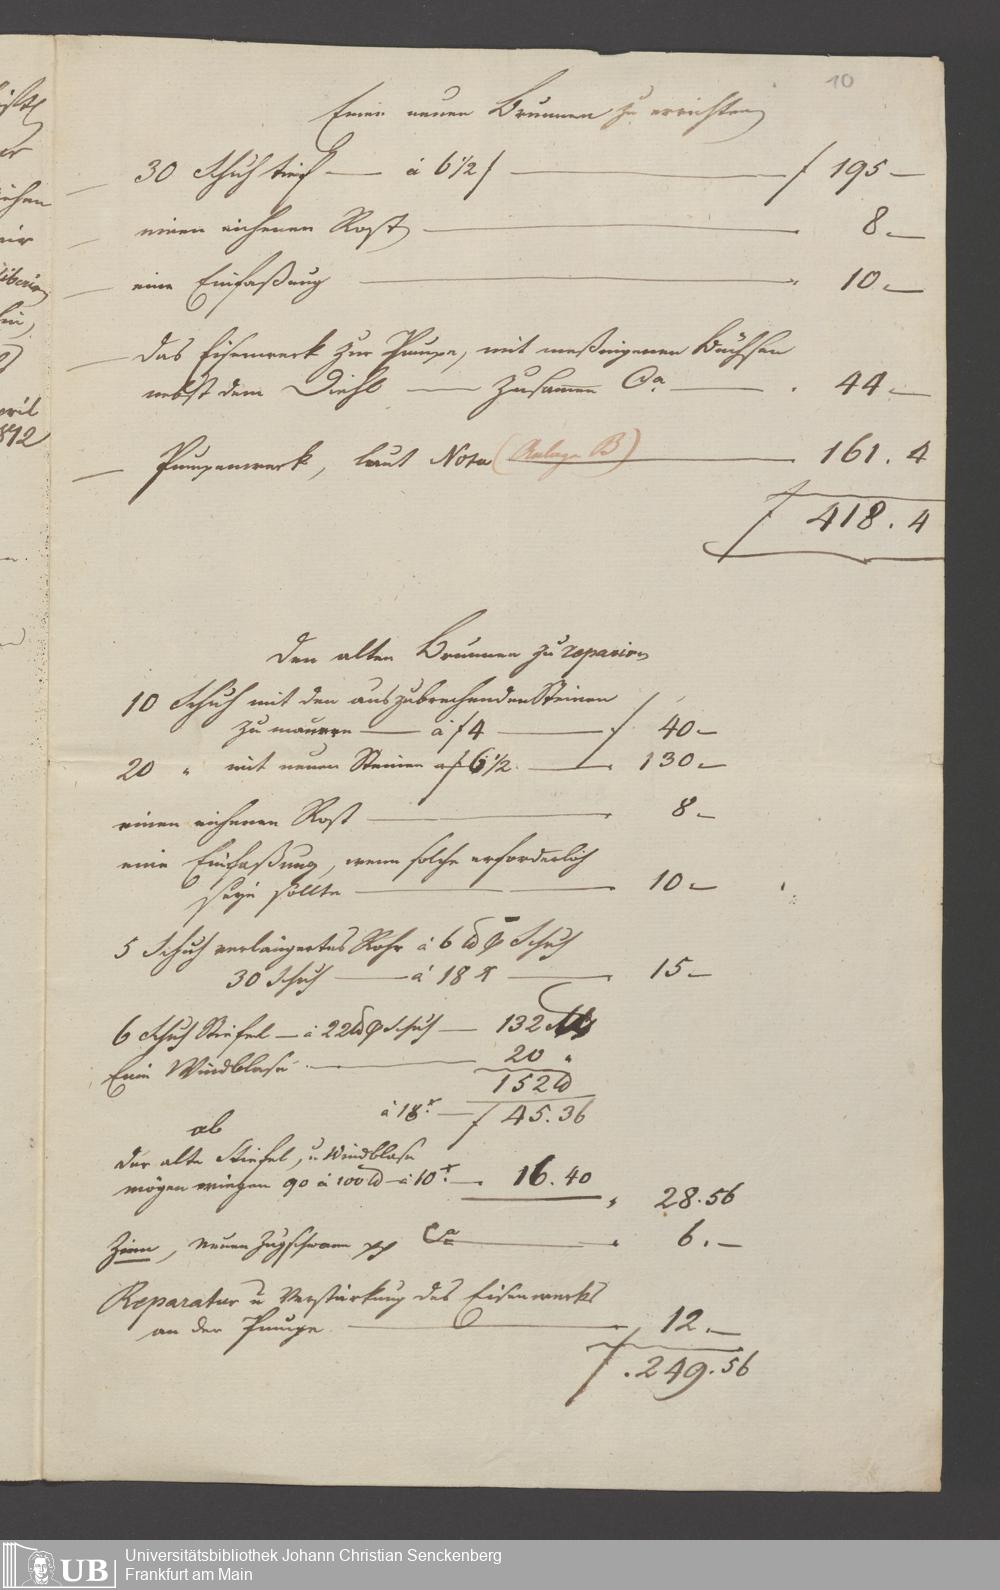 10
Einen neuen Brunnen zu errichten
30 Schuh tief — à 6 1/2 f — f 195 —
einen eichenen Rost — " 8 . —
eine Einfaßung — " 10 . —
das Eisenwerk zur Pumpe, mit messingenen Büchsen
nebst dem Diehl — zusammen Ca. — " 44 . —
Pumpenwerk, laut Nota (Anlage B) — " 161 . 4
f 418 . 4
Den alten Brunnen zu reparirn
10 Schuh mit den auszubrechenden Steinen
zu mauern — à f 4 — f 40 —
20 " mit neuen Steinen à f 6 1/2 . — " 130 . —
einen eichenen Rost — " 8 —
eine Einfaßung, wenn solche erforderlich
seyn sollte — " 10 . —
5 Schuh verlängertes Rohr à 6 ℔ p Schuh
30 — à 18 x — " 15 —
6 Schuh Stiefel — à 22 ℔ p Schuh — 132
Eine Windblase — 20 "
152 ℔
à 18 x — f 45 . 36
ab
der alte Stiefel, u. Windblase
mögen wiegen 90 à 100 ℔ — à 10 x — 16 . 40 " 28 . 56
Zinn, neuen pp Ca — " 6 . —
Reparatur u Verstärkung des Eisenwerks
an der Pumpe — " 12 . —
f . 249 . 56
april
1812
UB
Universitätsbibliothek Johann Christian Senckenberg
Frankfurt am Main